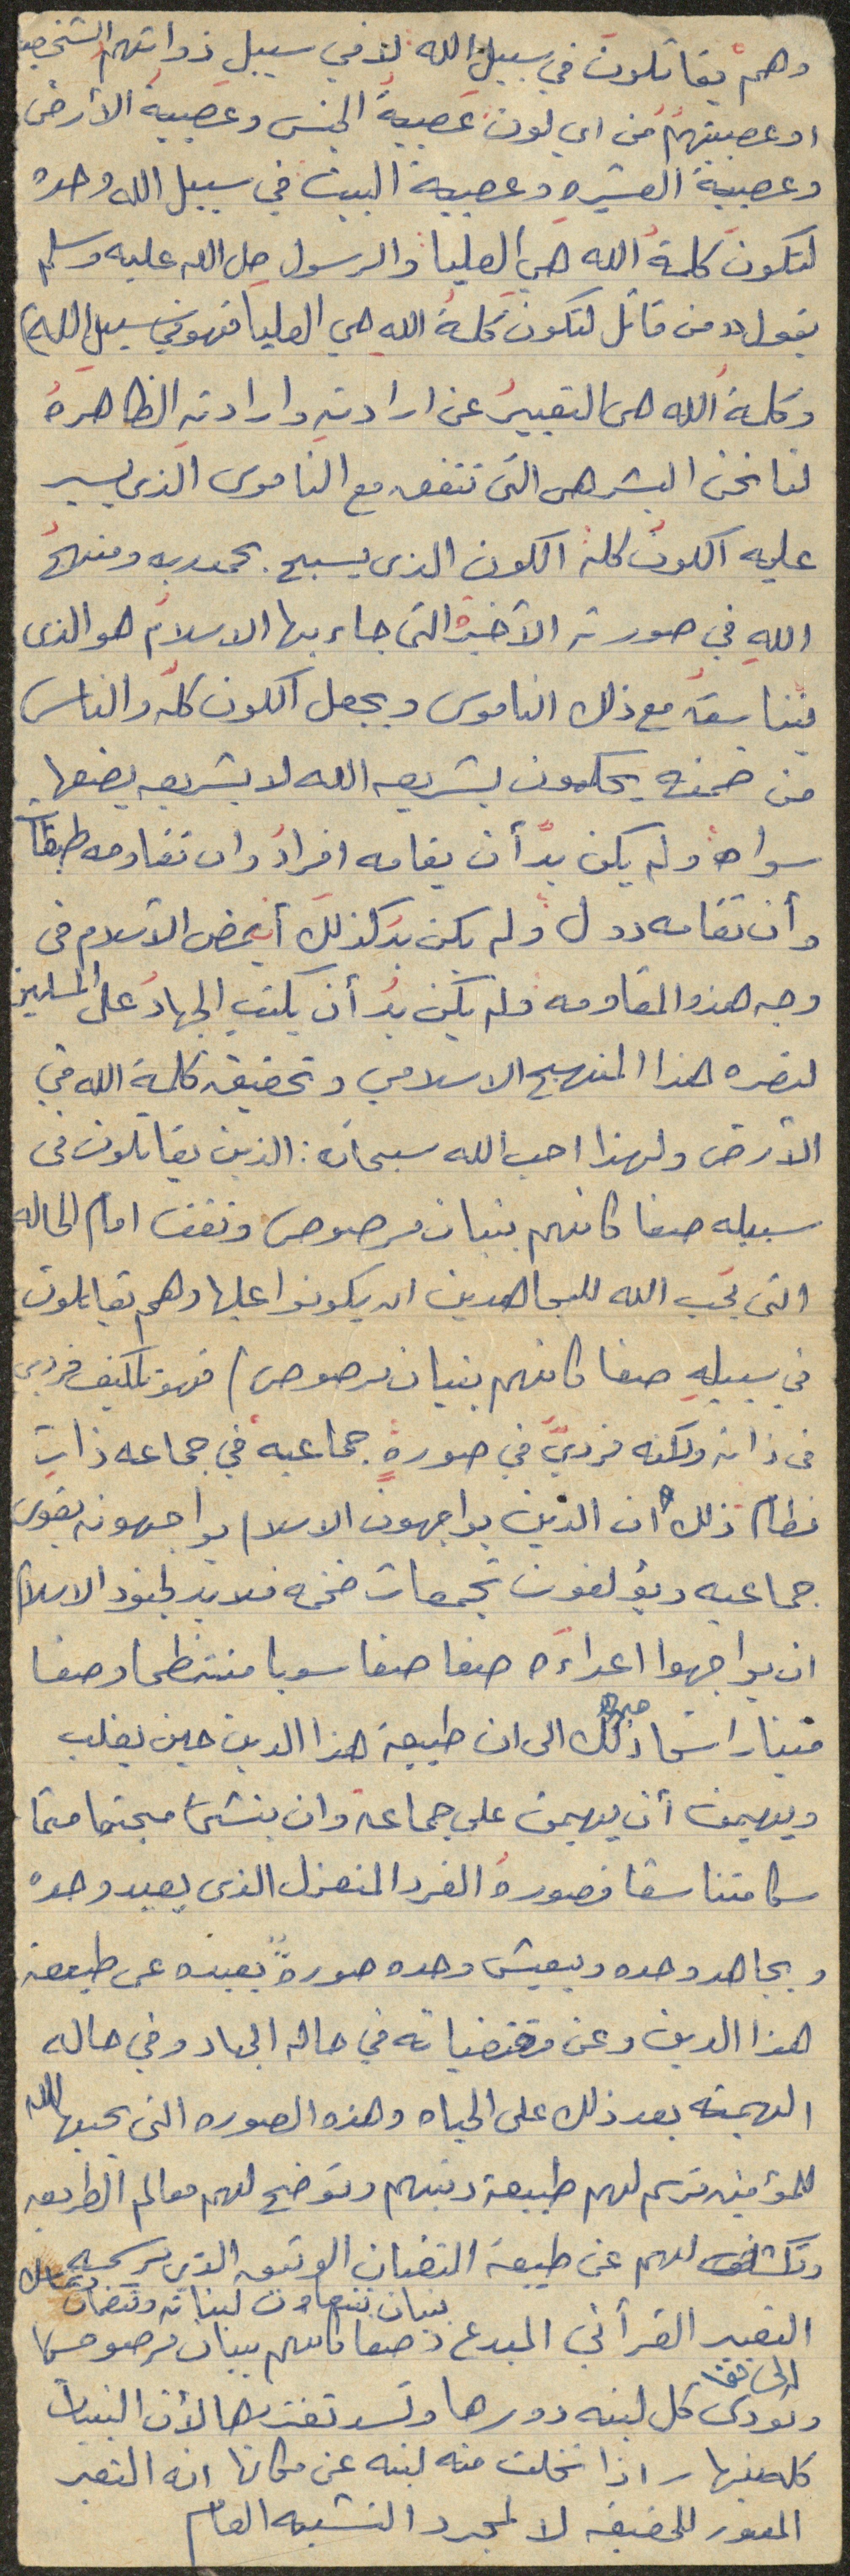 وهم يقاتلون في سبيل الله لا في سبيل ذواتهم الشخصية
او عصبيتهم من اي لون عصبية الجنس وعصبية الأرض
وعصبية العشيره وعصبية البيت في سبيل الله وحده
لتكون كلمة الله هي العليا والرسول صل الله عليه وسلم
يقول «من قاتل لتكون كلمة الله هي العليا فهو في سبيل الله»
وكلمة الله هى التعبير عن ارادته وارادته الظاهرة
لنا نحن البشر هى التى تتفق مع الناموس الذى يسير
عليه الكون كلة الكون الذى يسبح بحمد ربه ومنهج
الله في صورته الأخيرة التى جاء بها الاسلام هو الذى
يتناسق مع ذلك الناموس ويجعل الكون كله والناس
من ضمنه يحكمون بشريعه الله لا بشريعه يضعها
سواه ولم يكن بدأن يقامه افراد وان تقاومه طبقات
وأن تقامه دول ولم يكن بد كذلك أن يمض الأسلام فى
وجه هذه المقاومه ولم يكن بد أن يكتب الجهاد على المسلمين
لنصره هذا المنهج الاسلامي وتحقيق كلمة الله في
الأرض ولهذا احب الله سبحانه: الذين يقاتلون فى
سبيله صفا كانهم بنيان مرصوص ونقف امام الحاله
التى يحب الله للمجاهدين ان يكونوا عليها وهم يقاتلون
في سبيله صفا كانهم بنيان مرصوص) فهو تكليف فردى
فى ذاته ولكنه فردي في صورة جماعية في جماعه ذات
نظام ذلك ان الذين يواجهون الاسلام يواجهونه بقوى
جماعيه ويؤلفون تجمعات ضخمه فلا بد لجنود الاسلام
ان يواجهوا اعداءه صفا صفا سويا منتظما وصفا
متينا راسخا ذلك الى ان طبيعة هذا الدين حين يغلب
ويهيمن أن يهيمن على جماعة وان ينشئ مجتمعا متما
سكا متناسقا فصورة الفرد المنعزل الذى يعبد وحده
ويجاهد وحده ويعيش وحده صورة بعيده عن طبيعة
هذا الدين وعن مقتضياته في حاله الجهاد وفي حاله
الهيمنه بعد ذلك على الحياه وهذه الصوره التى يحبها الله
للمؤمنين ترسم لهم طبيعة دينهم وتوضح لهم معالم الطريق
وتكشف لهم عن طبيعة التضمان الوثيق الذي يرسمه
بنيان تتعاون لبناته وتتضمان وتتماسك
التعبير القرآني المبدع (صفا كانهم بنيان مرصوص)
وتودى كل لبنه دورها وتسد ثغرتها لأن البنيان
كله ينهار اذا تخلت منه لبنه عن مكانها انه التعبير
المصور للحقيقه لا لمجرد التشبيه العام